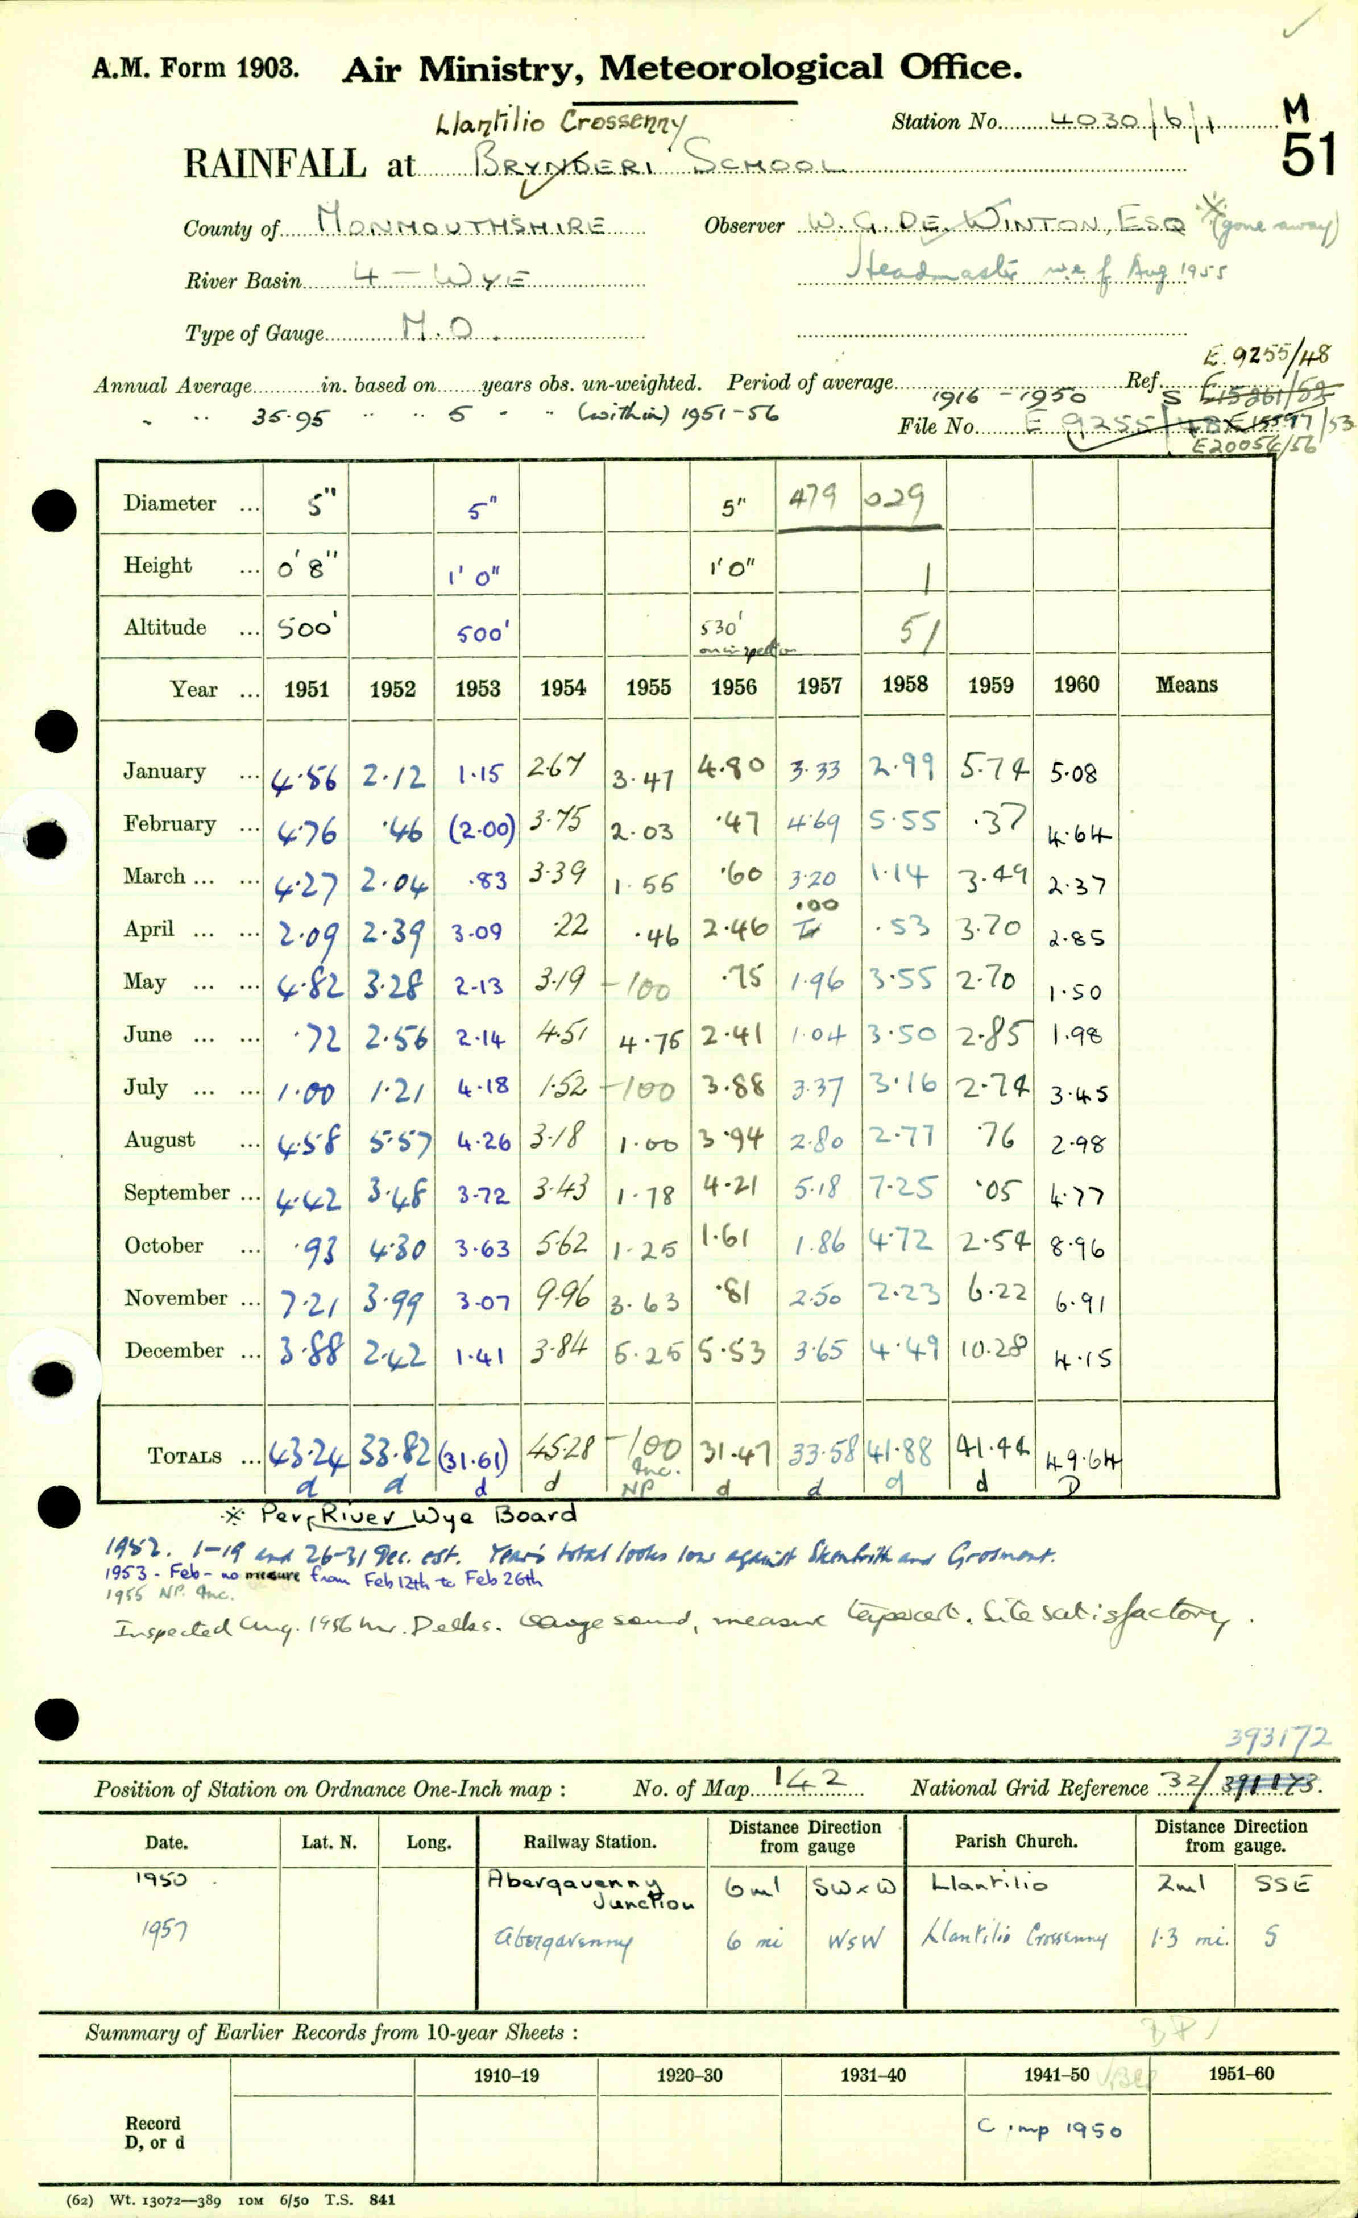 A.M. Form 1903. Air Ministry, Meteorological Office.
Llantilio Crossenny
Station No. 4030/6/1
M
51
RAINFALL at BRYNDERI SCHOOL
County of MONMOUTHSHIRE Observer W. G. DE. WINTON, ESQ * (gone away)
River Basin 4 - WYE Headmaster w.e.f. Aug 1955
Type of Gauge M.O.
E.9255/48
Annual Average in. based on years obs. un-weighted. Period of average 1916 - 1950 Ref. S E15261/52
" " 35.95 " " 5 " " (within) 1951-56 File No. E 9255/48 E15597/53
E20056/56
Diameter ... 5" 5" 5" 479 029
Height ... 0' 8" 1' 0" 1' 0" 1
Altitude ... 500' 500' 530' on inspection 51
Year ... 1951 1952 1953 1954 1955 1956 1957 1958 1959 1960 Means
January ... 4.56 2.12 1.15 2.67 3.47 4.80 3.33 2.99 5.74 5.08
February ... 4.76 .46 (2.00) 3.75 2.03 .47 4.69 5.55 .37 4.64
March ... ... 4.27 2.04 .83 3.39 1.55 .60 3.20 1.14 3.49 2.37
April ... ... 2.09 2.39 3.09 .22 .46 2.46 .00 Tr .53 3.70 2.85
May ... ... 4.82 3.28 2.13 3.19 -100 .75 1.96 3.55 2.70 1.50
June ... ... .72 2.56 2.14 4.51 4.75 2.41 1.04 3.50 2.85 1.98
July ... ... 1.00 1.21 4.18 1.52 -100 3.88 3.37 3.16 2.74 3.45
August ... 4.58 5.57 4.26 3.18 1.00 3.94 2.80 2.77 .76 2.98
September ... 4.42 3.48 3.72 3.43 1.78 4.21 5.18 7.25 .05 4.77
October ... .93 4.30 3.63 5.62 1.25 1.61 1.86 4.72 2.54 8.96
November ... 7.21 3.99 3.07 9.96 3.63 .81 2.50 2.23 6.22 6.91
December ... 3.88 2.42 1.41 3.84 5.25 5.53 3.65 4.49 10.28 4.15
TOTALS ... 43.24 33.82 (31.61) 45.28 -100 31.47 33.58 41.88 41.44 49.64
d d d d Inc. NP d d d d D
* Per River Wye Board
1952. 1-19 and 26-31 Dec. est. Year's total looks low against Skenfrith and Grosmont.
1953 - Feb - no measure from Feb 12th to Feb 26th
1955 NP. Inc.
Inspected Aug. 1956 Mr. Delks. Gauge sound, measure . Site satisfactory.
393172
Position of Station on Ordnance One-Inch map : No. of Map 142 National Grid Reference 32/391173.
Date. Lat. N. Long. Railway Station. Distance Direction from gauge Parish Church. Distance Direction from gauge.
1950 Abergavenny Junction 6ml SWxW Llantilio 2ml SSE
1957 Abergavenny 6 mi WSW Llantilio Crossenny 1.3 mi. S
Summary of Earlier Records from 10-year Sheets :
1910–19 1920–30 1931–40 1941–50 1951–60
Record
D, or d
Comp 1950
(62) Wt. 13072—389 10M 6/50 T.S. 841